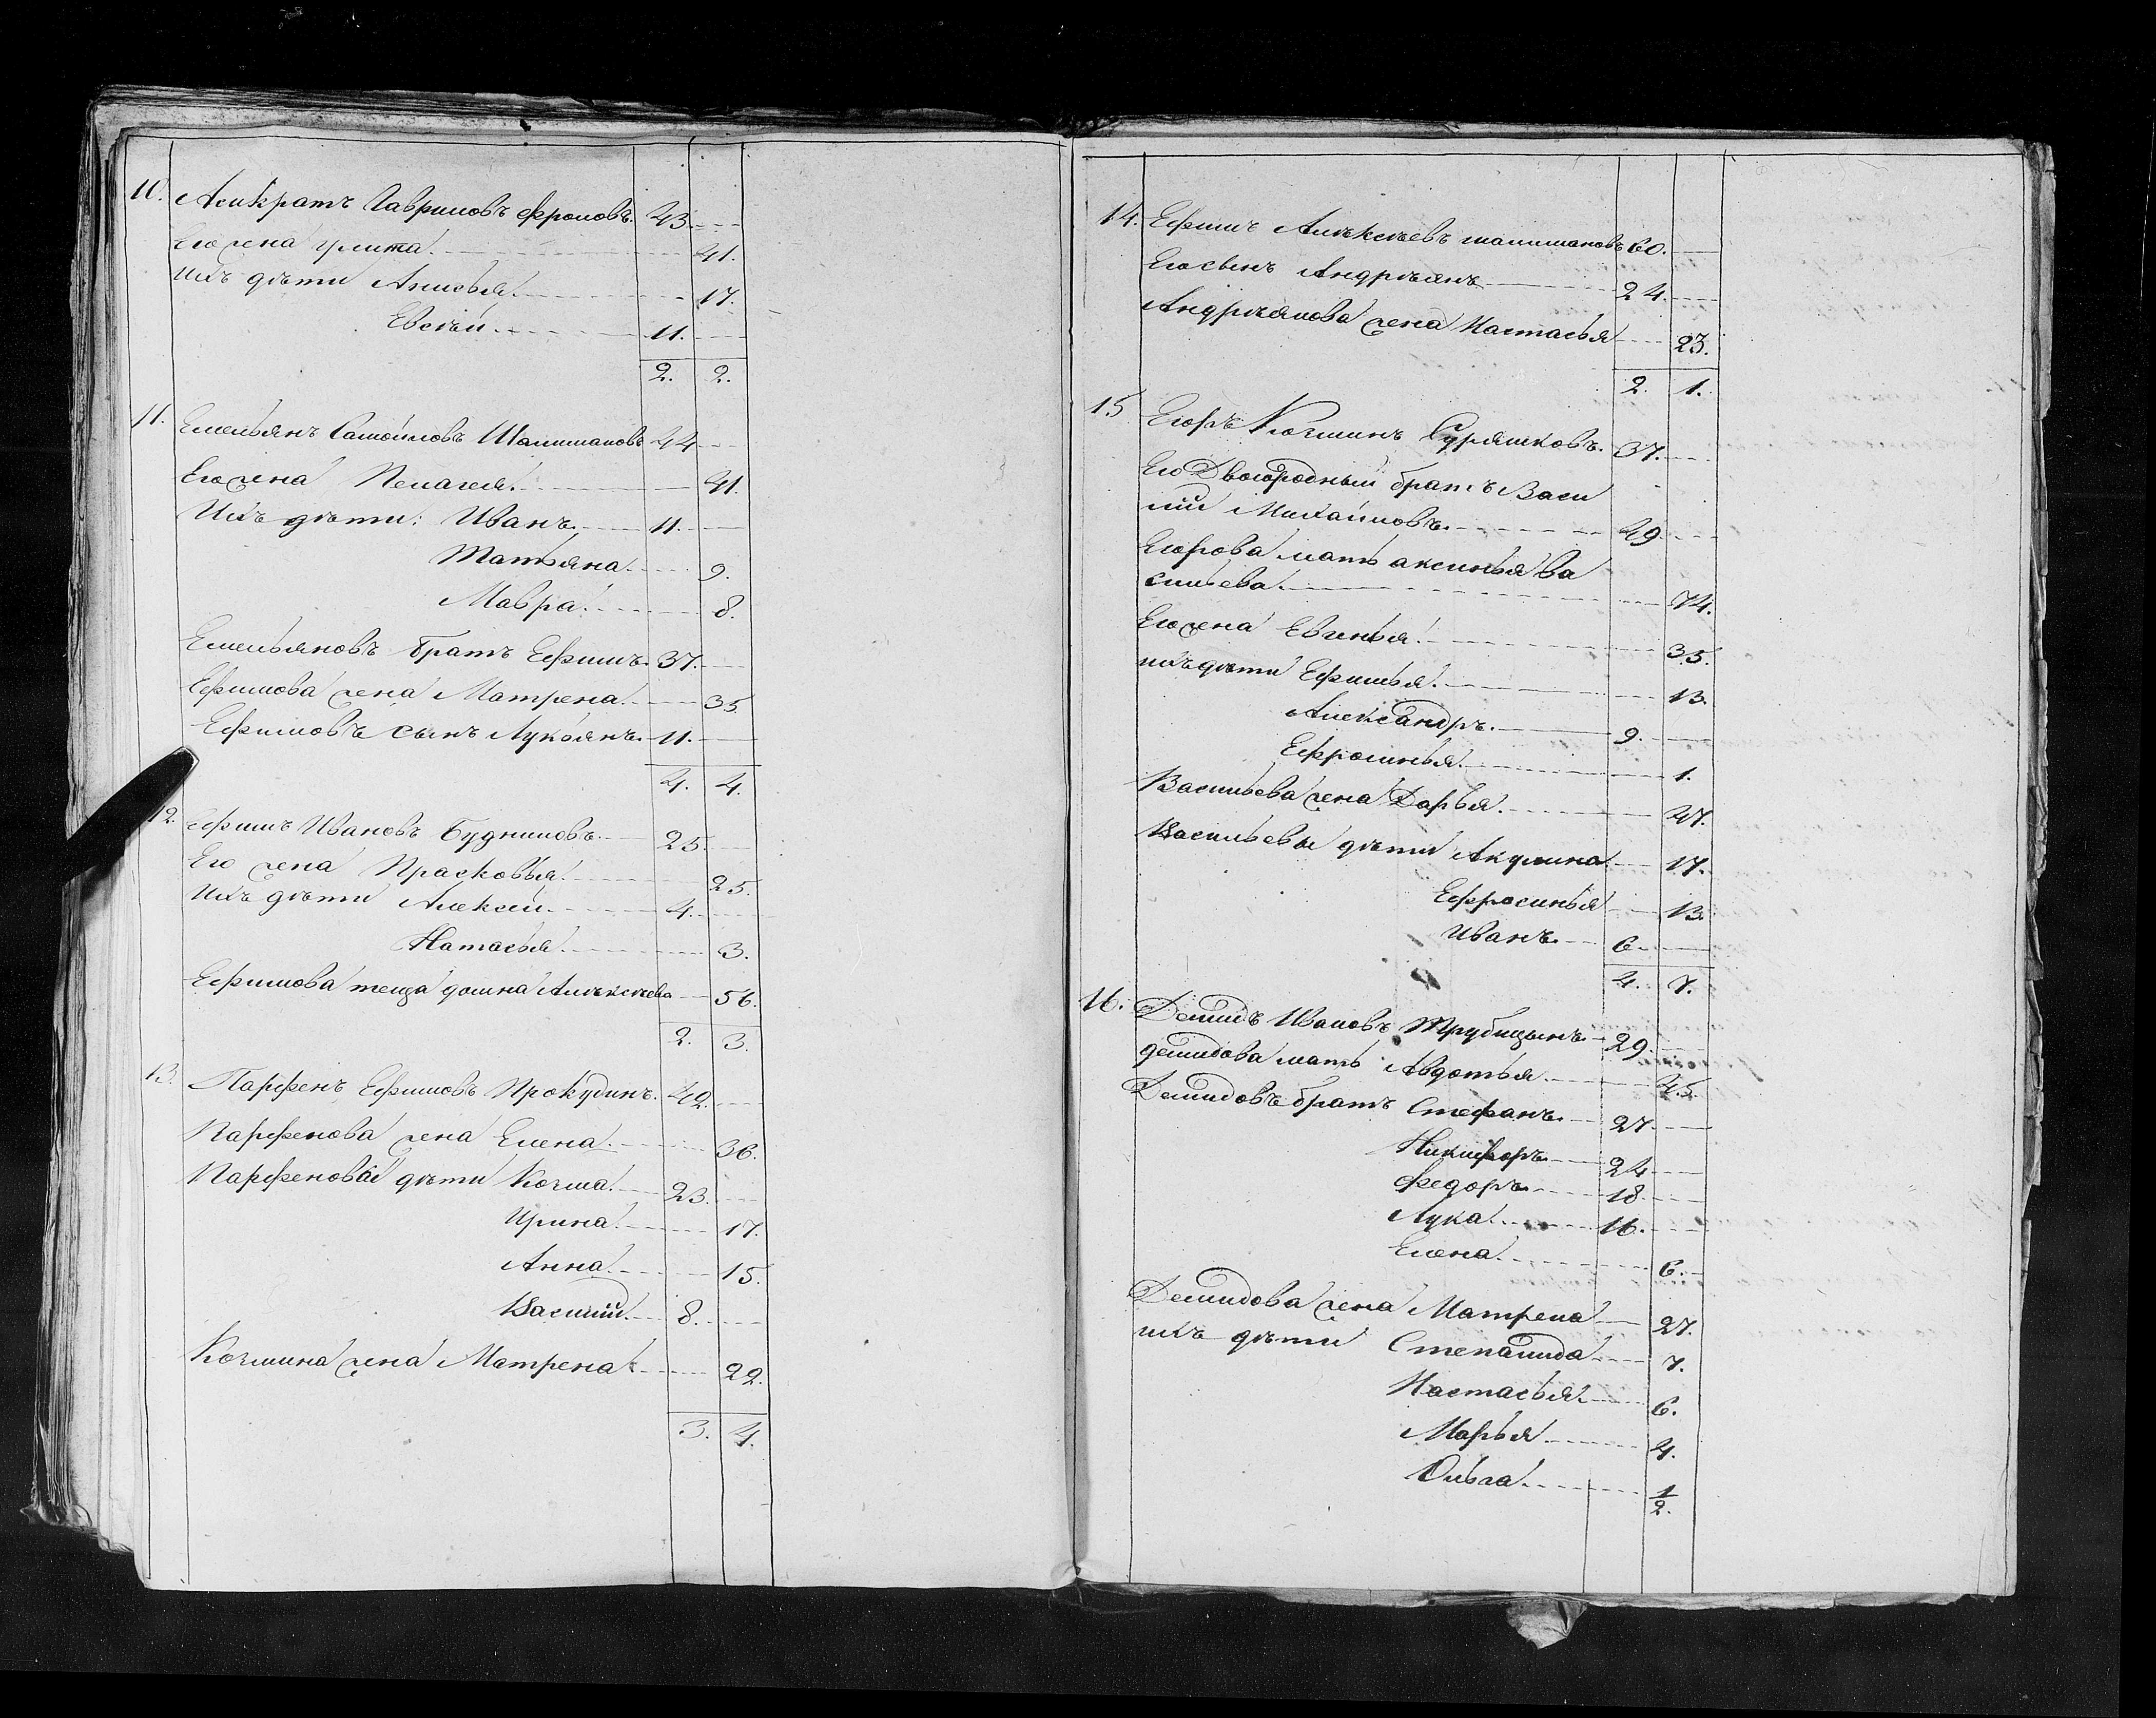 10. Асикратъ Гавриловъ Фроловъ. 43.
Его жена Улита. 41.
Ихъ дѣти Анисья. 17.
Евсѣй. 11.
2. 2.
11. Емельянъ Самойловъ Шалимановъ 44
Его жена Пелагея. 41.
Ихъ дѣти: Иванъ. 11.
Татьяна. 9.
Мавра. 8.
Емельяновъ братъ Ефимъ. 37.
Ефимова жена Матрена. 35
Ефимовъ сынъ Лукьянъ. 11.
4. 4.
12. Ефимъ Ивановъ Будниковъ. 25.
Его жена Прасковья. 25.
Ихъ дѣти Алексей. 4.
Натасья. 3.
Ефимова теща домна Алѣксѣева 56.
2. 3.
13. Парфенъ Ефимовъ Прокудинъ. 42.
Парфенова жена Елена. 36.
Парфеновы дѣти Козма. 23.
Ирина. 17.
Анна. 15.
Василий. 8.
Козмина жена Матрена. 22.
3. 4.
14. Ефимъ Алѣксѣевъ шалимановъ 60.
Его сынъ Андрѣянъ 24.
Андрѣянова жена Настасья 23.
2. 1.
15 Егоръ Козминъ Суряшковъ. 37.
Его Двоюродный братъ Васи
лий Михайловъ. 49
Егорова мать аксинья Ва
сильева. 74.
Его жена Евгенья. 35.
ихъ дѣти Ефимья. 13.
Александръ. 9.
Ефросинья. 1.
Васильева жена Дарья. 47.
Васильевы дѣти Акулина 17.
Ефросинья 13.
Иванъ. 6.
4. 7.
16. Демидъ Ивановъ Трубицынъ. 29.
демидова мать Авдотья. 45.
Демидовъ братъ Стефанъ. 27
Никифоръ. 24
Федоръ. 18
Лука. 16.
Елена. 6.
Демидова жена Матрена 27.
ихъ дѣти Степанида 7.
Настасья. 6.
Марья 4.
Ольга. 1/2.